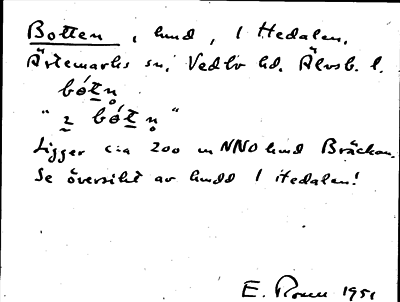 Botten, hmd, I Hedalen,
Ärtemarks sn, Vedbo hd. Älvsb. l.
bót̲n̥
"i̲ bót̲n̥"
Ligger c:a 200 m NNO hmd Bräckan.
Se översikt av hmdd I Hedalen!
E. 1951